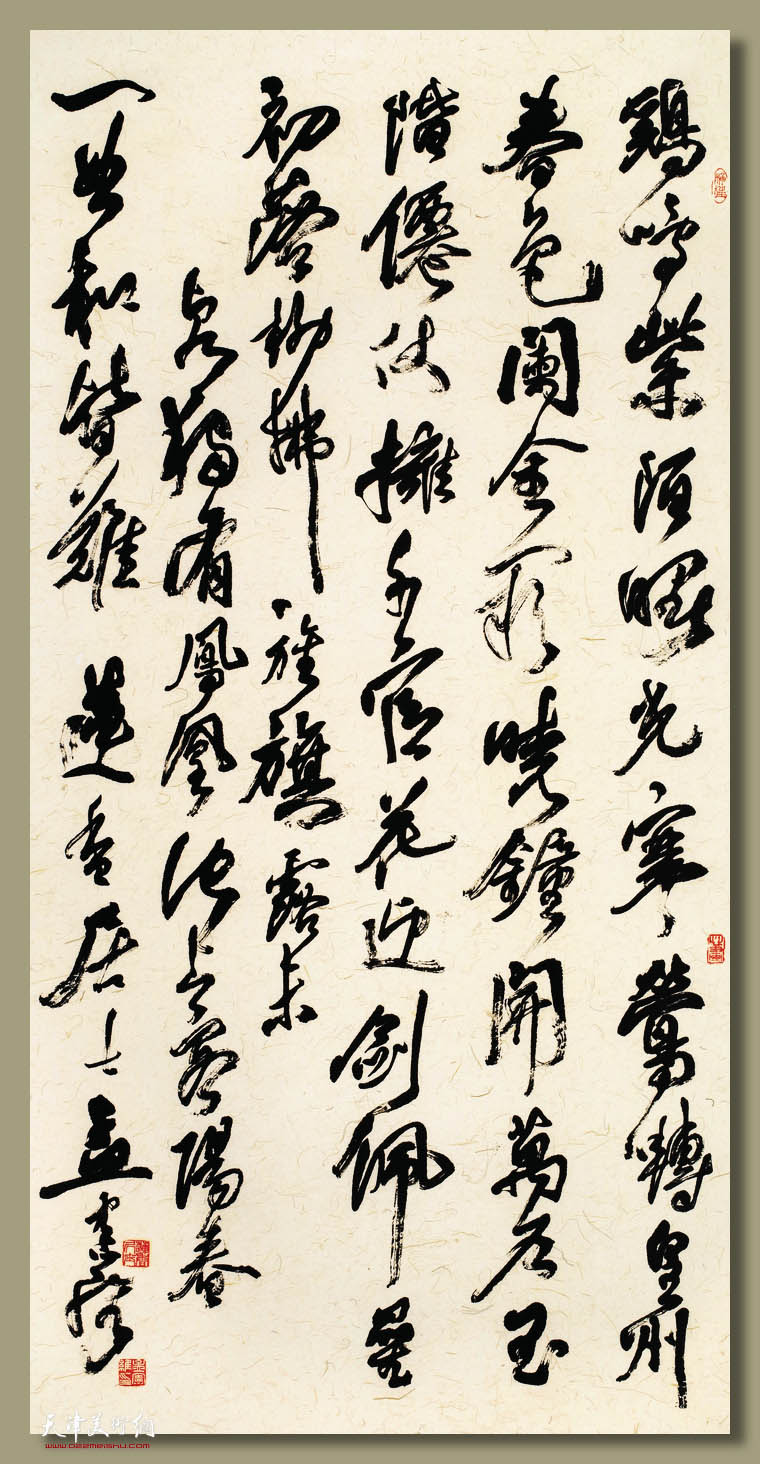 鷄鳴紫陌曙光寒鶯囀皇州
春色闌金闕曉鐘開萬戶玉
階僊仗擁千官花迎劍佩星
初落柳拂旌旗露未
乾獨有鳳凰池上客陽春
一曲和皆難 蓮香居士孟憲
天津美術網
www.022meishu.com